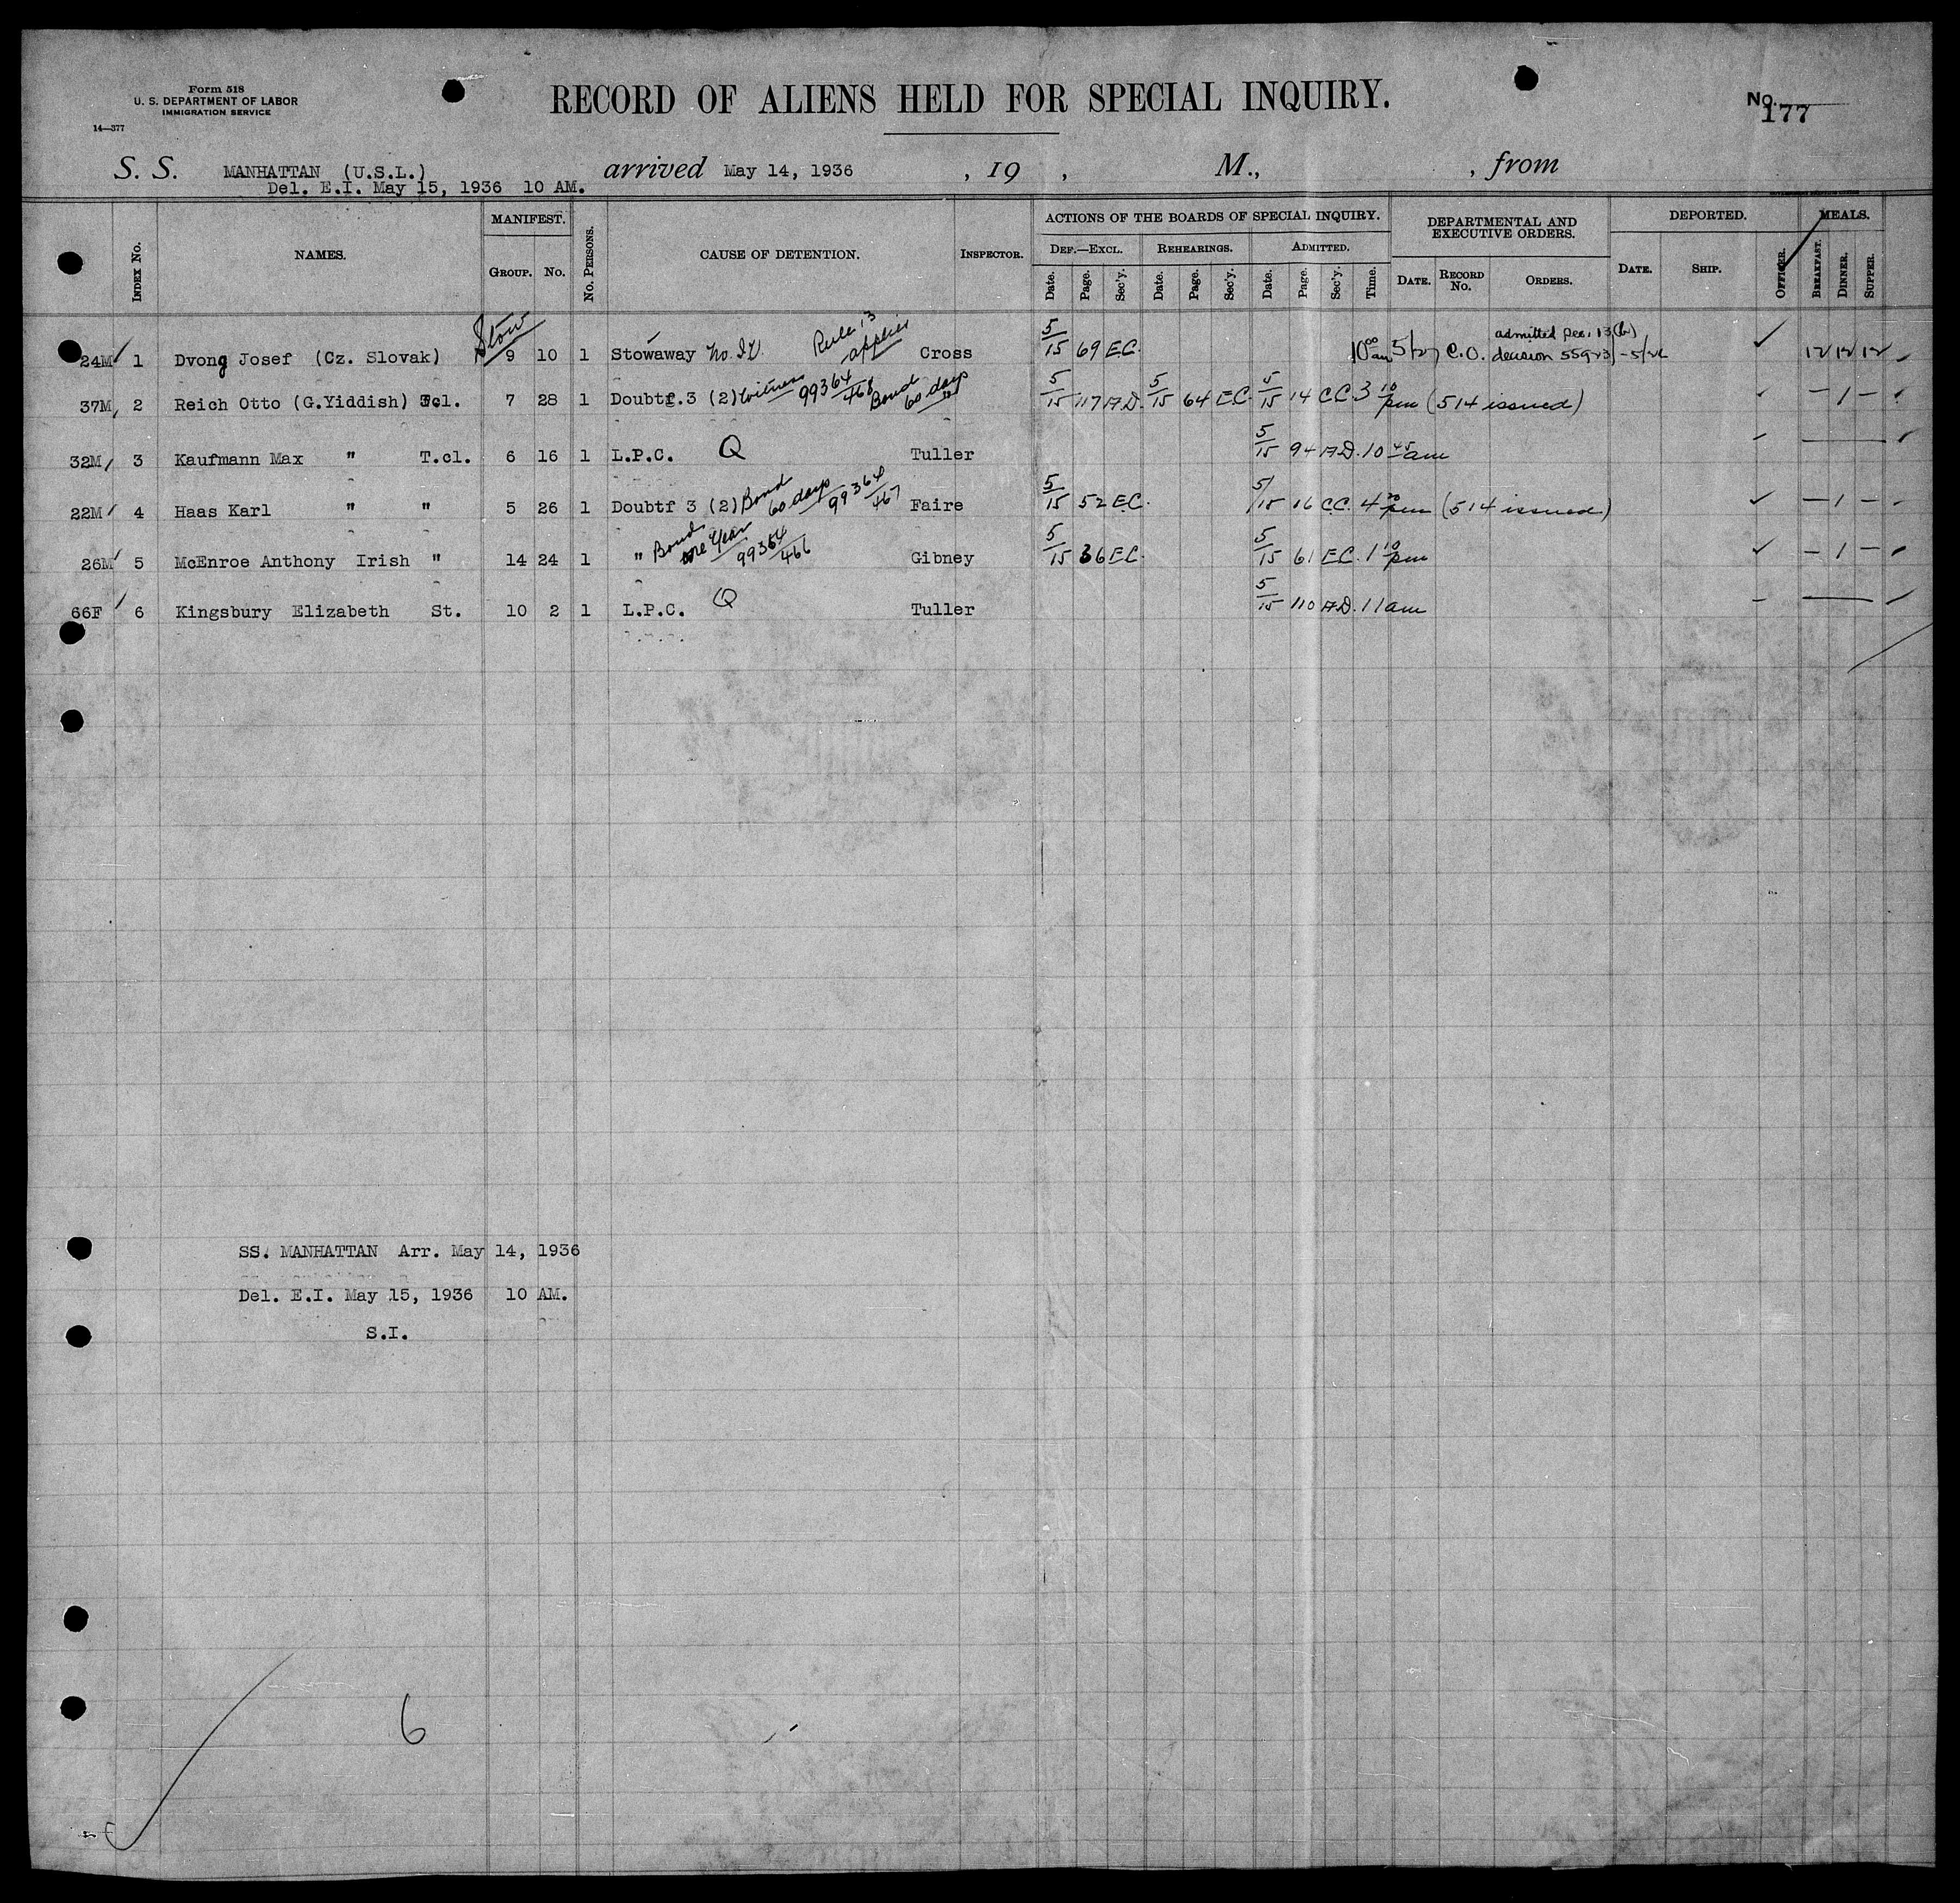 Form 518
U. S. DEPARTMENT OF LABOR
IMMIGRATION SERVICE
14—377
RECORD OF ALIENS HELD FOR SPECIAL INQUIRY.
No. 177
S. S. MANHATTAN (U.S.L.) arrived May 14, 1936 , 19 , M., , from
Del. E.I. May 15, 1936 10 AM.
Index No. NAMES. MANIFEST. Group. No. No. Persons. CAUSE OF DETENTION. Inspector. ACTIONS OF THE BOARDS OF SPECIAL INQUIRY. DEPARTMENTAL AND EXECUTIVE ORDERS. DEPORTED. MEALS.
Def.—Excl. Rehearings. Admitted.
Date. Page. Sec'y. Date. Page. Sec'y. Date. Page. Sec'y. Time. Date. Record No. Orders. Date. Ship. Officer. Breakfast. Dinner. Supper.
24M 1 Dvong Josef (Cz. Slovak) Stow 9 10 1 Stowaway No. I.V. Rule 13 applies Cross 5/15 69 E.C. 10 00 am 5/27 C.O. admitted Sec. 13(b) decision 12 12 12
37M 2 Reich Otto (G.Yiddish) T.cl. 7 28 1 Doubtf.3 (2) Witness 99364/468 Bond 60 days 5/15 117 A.D. 5/15 64 E.C. 5/15 14 C.C. 3 10 pm (514 issued) – 1 –
32M 3 Kaufmann Max " T.cl. 6 16 1 L.P.C. Q Tuller 5/15 94 A.D. 10 45 am
22M 4 Haas Karl " " 5 26 1 Doubtf 3 (2) Bond 60 days 99364/467 Faire 5/15 52 E.C. 5/15 16 C.C. 4 20 pm (514 issued) – 1 –
26M 5 McEnroe Anthony Irish " 14 24 1 " Bond one Year 99364/466 Gibney 5/15 36 E.C. 5/15 61 E.C. 1 10 pm – 1 –
66F 6 Kingsbury Elizabeth St. 10 2 1 L.P.C. Q Tuller 5/15 110 A.D. 11 am
SS. MANHATTAN Arr. May 14, 1936
Del. E.I. May 15, 1936 10 AM.
S.I.
6